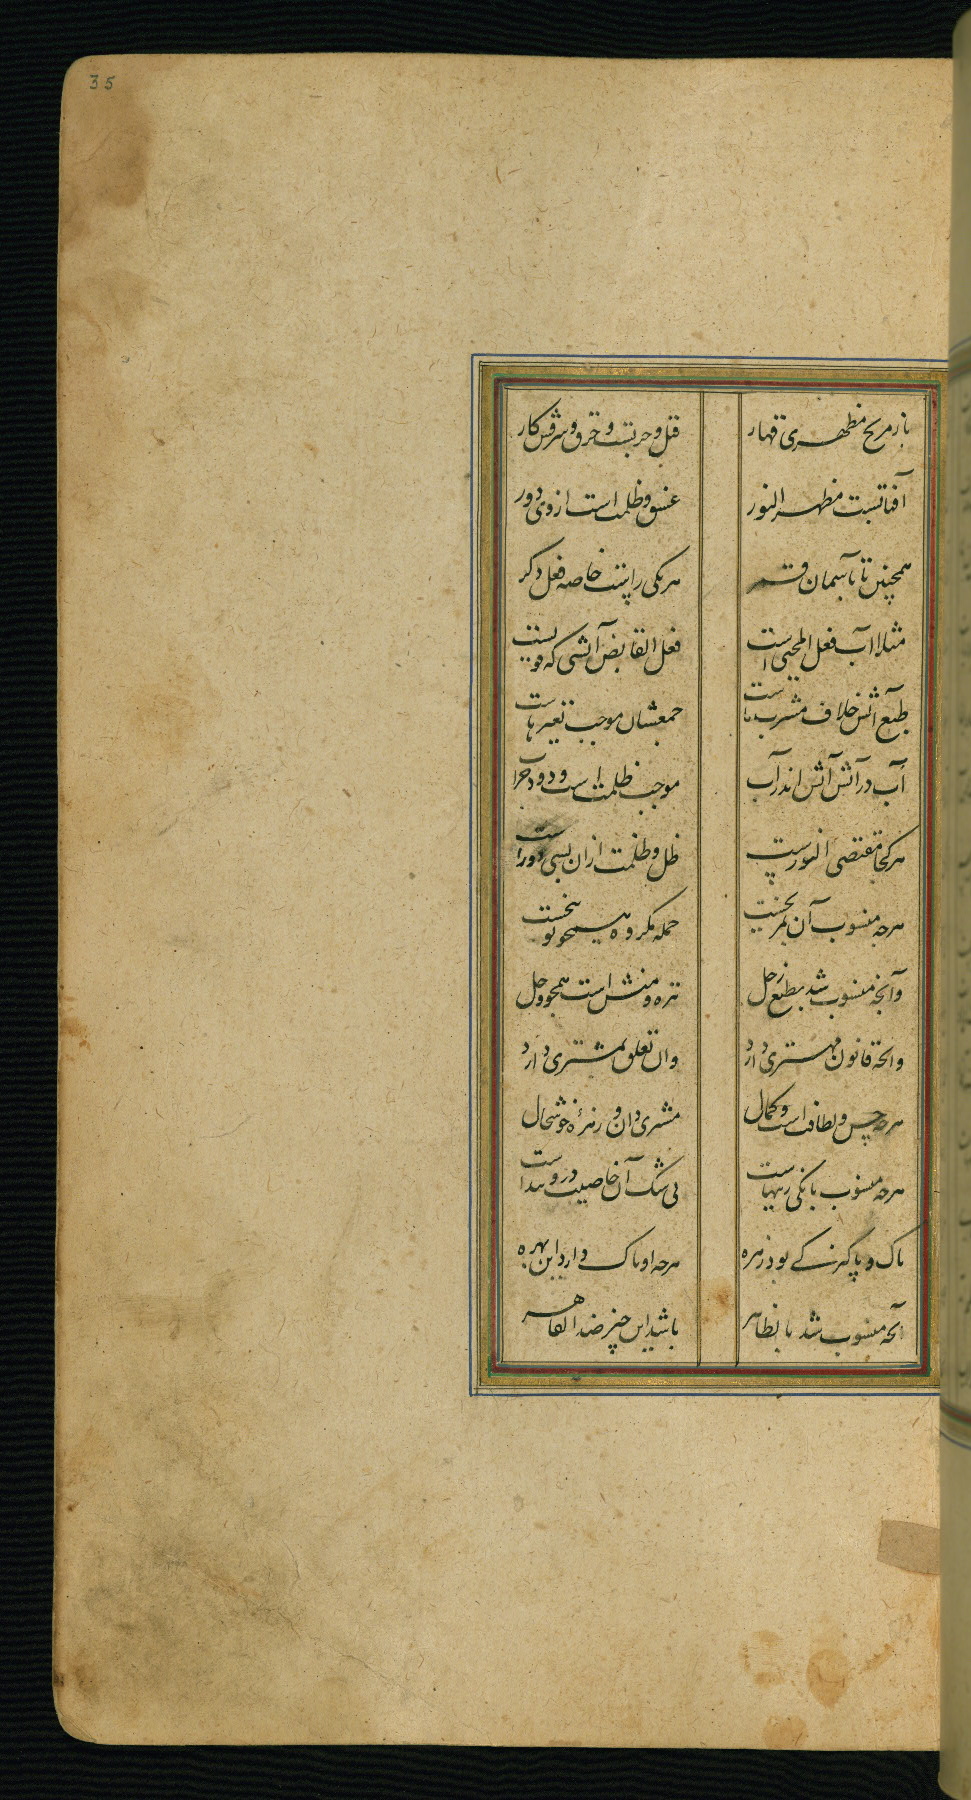 35
باز مریخ مظهری قهار قتل و حربست و خرق و سرقش کار
آفتابست مظهر النور غسق و ظلمت است از وی دور
همچنین تا بآسمان و قمر هر یکی راست خاصه فعل دگر
مثلا آب فعل المحیی است فعل القابض آتشی که قویست
طبع آتش خلاف مشرب ماست جمعشان موجب تغیرهاست
آب در آتش آتش اندر آب موجب ظلمت است و دود
هر کجا مقتضی النورست ظل و ظلمت ازان بسی دورست
هرچه منسوب آن جمله مکروه همچو
وآنچه منسوب شد بطبع زحل تیره و منش است همچو وحل
وانچه قانون مهتری دارد وان تعلق بمشتری دارد
هرچه حسن و لطافت است و کمال مشتری دان و زهره خوشحال
هرچه منسوب بی شک آن خاصیت درو پیداست
پاک و پاکیزکی بود زهره هرچه او پاک دارد این بهره
آنچه منسوب شد با نظاهر باشد این چیز ضد القاهر